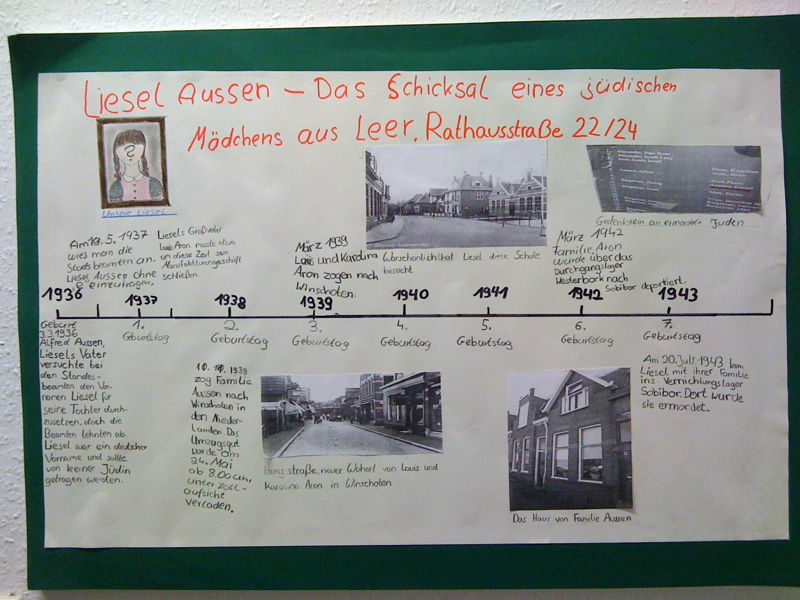 Liesel Aussen – Das Schicksal eines jüdischen
Mädchens aus Leer, Rathausstraße 22/24
?
Unsere Liesel
Am 19.5.1937
wies man die
Standesbeamten an.
Liesel Aussen ohne
e einzutragen.
Liesels Großvater
Luis Aron musste dann
um diese Zeit sein
Manufakturwarengeschäft
schließen.
März 1939
Louis und Karolina
Aron zogen nach
Winschoten.
Wahrscheinlich hat Liesel diese Schule
besucht
Gedenkstein an ermordete Juden
März 1942
Familie Aron
wurde über das
Durchgangslager
Westerbork nach
Sobibor deportiert.
1936 1937 1938 1939 1940 1941 1942 1943
Geburt
3.3.1936
1. Geburtstag
2. Geburtstag
3. Geburtstag
4. Geburtstag
5. Geburtstag
6. Geburtstag
7. Geburtstag
Alfred Aussen,
Liesels Vater
versuchte bei
den Standes-
beamten den Vor-
namen Liesel für
seine Tochter durch-
zusetzen, doch die
Beamten lehnten ab.
Liesel war ein deutscher
Vorname und sollte
von keiner Jüdin
getragen werden.
zog Familie
Aussen nach
Winschoten in
den Nieder-
landen. Das
Umzugsgut
wurde am
24. Mai
ab 8.00 Uhr
unter Zoll-
aufsicht
verladen.
straße, neuer Wohnort von Louis und
Karolina Aron in Winschoten
Das Haus von Familie Aussen
Am 20. Juli 1943 kam
Liesel mit ihrer Familie
ins Vernichtungslager
Sobibor. Dort wurde
sie ermordet.